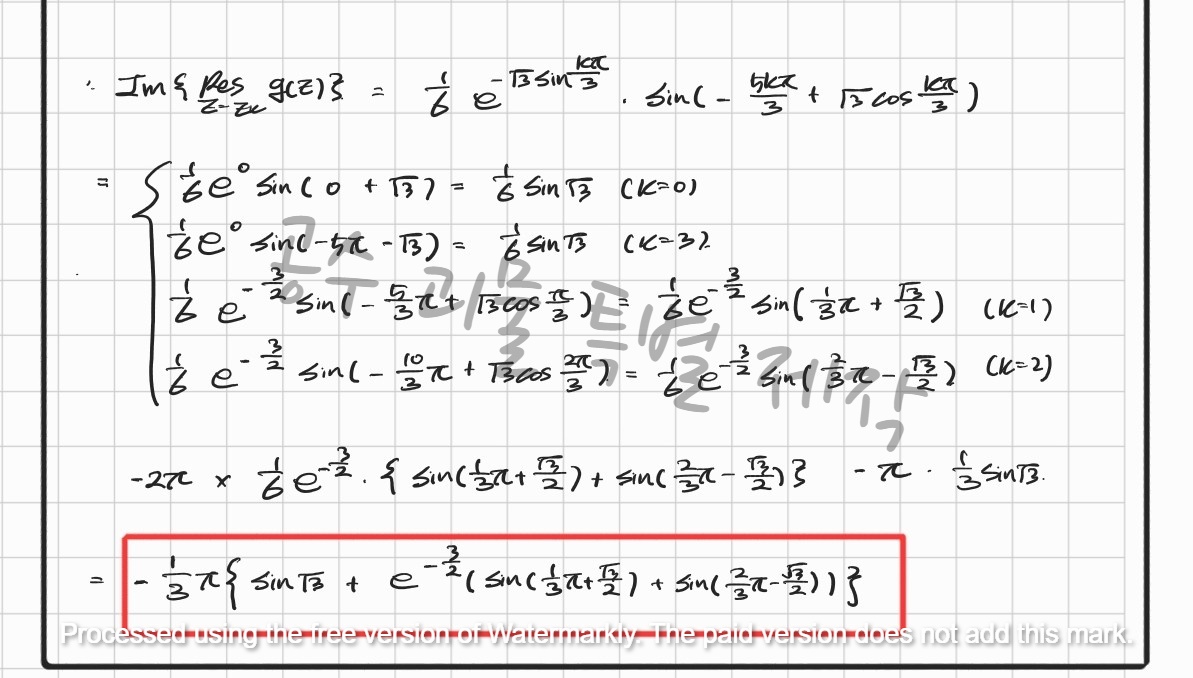 ∴ Im{Res_{z=z_k} g(z)} = 1/6 e^{-√3 sin kπ/3} · sin(- 5kπ/3 + √3 cos kπ/3)
= { 1/6 e^0 sin(0 + √3) = 1/6 sin√3 (k=0)
1/6 e^0 sin(-5π - √3) = 1/6 sin√3 (k=3)
1/6 e^{-3/2} sin(- 5/3 π + √3 cos π/3) = 1/6 e^{-3/2} sin(1/3 π + √3/2) (k=1)
1/6 e^{-3/2} sin(- 10/3 π + √3 cos 2π/3) = 1/6 e^{-3/2} sin(2/3 π - √3/2) (k=2)
공주 과물 특별
-2π × 1/6 e^{-3/2} · { sin(1/3 π + √3/2) + sin(2/3 π - √3/2)} - π · 1/3 sin√3.
= - 1/3 π{ sin√3 + e^{-3/2}(sin(1/3 π + √3/2) + sin(2/3 π - √3/2))}
Processed using the free version of Watermarkly. The paid version does not add this mark.